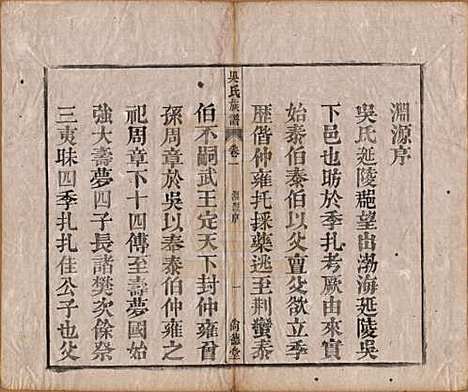 淵源序
吳氏延陵郡望由渤海延陵吳
下邑也昉於季扎考厥由來實
始泰伯泰伯以父亶父欲立季
歷偕仲雍托採藥逃至荆蠻泰
吳氏族譜
卷一
淵源序
一
尙德堂
伯不嗣武王定天下封仲雍曾
孫周章於吳以奉泰伯仲雍之
祀周章下十四傳至壽夢國始
強大壽夢四子長諸樊次餘祭
三夷昧四季扎扎佳公子也父